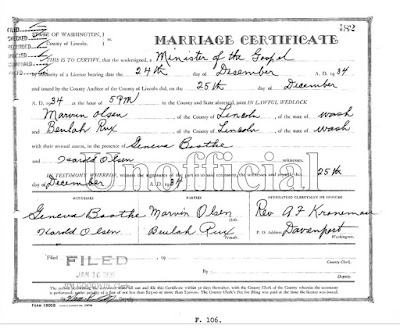 382
STATE OF WASHINGTON,
County of Lincoln.
MARRIAGE CERTIFICATE
THIS IS TO CERTIFY, that the undersigned, a Minister of the Gospel
by authority of a License bearing date the 24th day of Desember A. D. 1934
and issued by the County Auditor of the County of Lincoln did, on the 25th day of December
A. D. 34 at the hour of 5 PM in the County and State aforesaid, join IN LAWFUL WEDLOCK
Marvin Olsen of the County of Lincoln of the state of Wash
and Beulah Rux of the County of Lincoln of the state of Wash
with their mutual assent, in the presence of Geneva Boothe
and Harold Olsen witnesses.
IN TESTIMONY WHEREOF, witness the signatures of the parties to said ceremony, the witnesses and myself, this 25th
day of December A. D. 1934
Unofficial
WITNESSES
PARTIES
OFFICIATING CLERGYMAN OR OFFICER
Geneva Boothe
Marvin Olsen
Rev A F Kroneman
Harold Olsen
Beulah Rux
P. O. Address Davenport
Washington.
Filed
FILED
County Clerk.
By
Deputy.
JAN
F. 106.